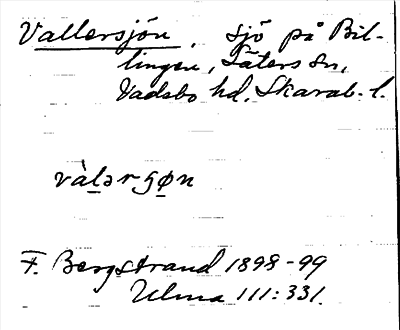 Vallersjön, sjö på Bil-
lingen, Säters sn,
Vadsbo hd, Skarab. l.
vàlərʂøn
F. Bergstrand 1898-99
Ulma 111:331.